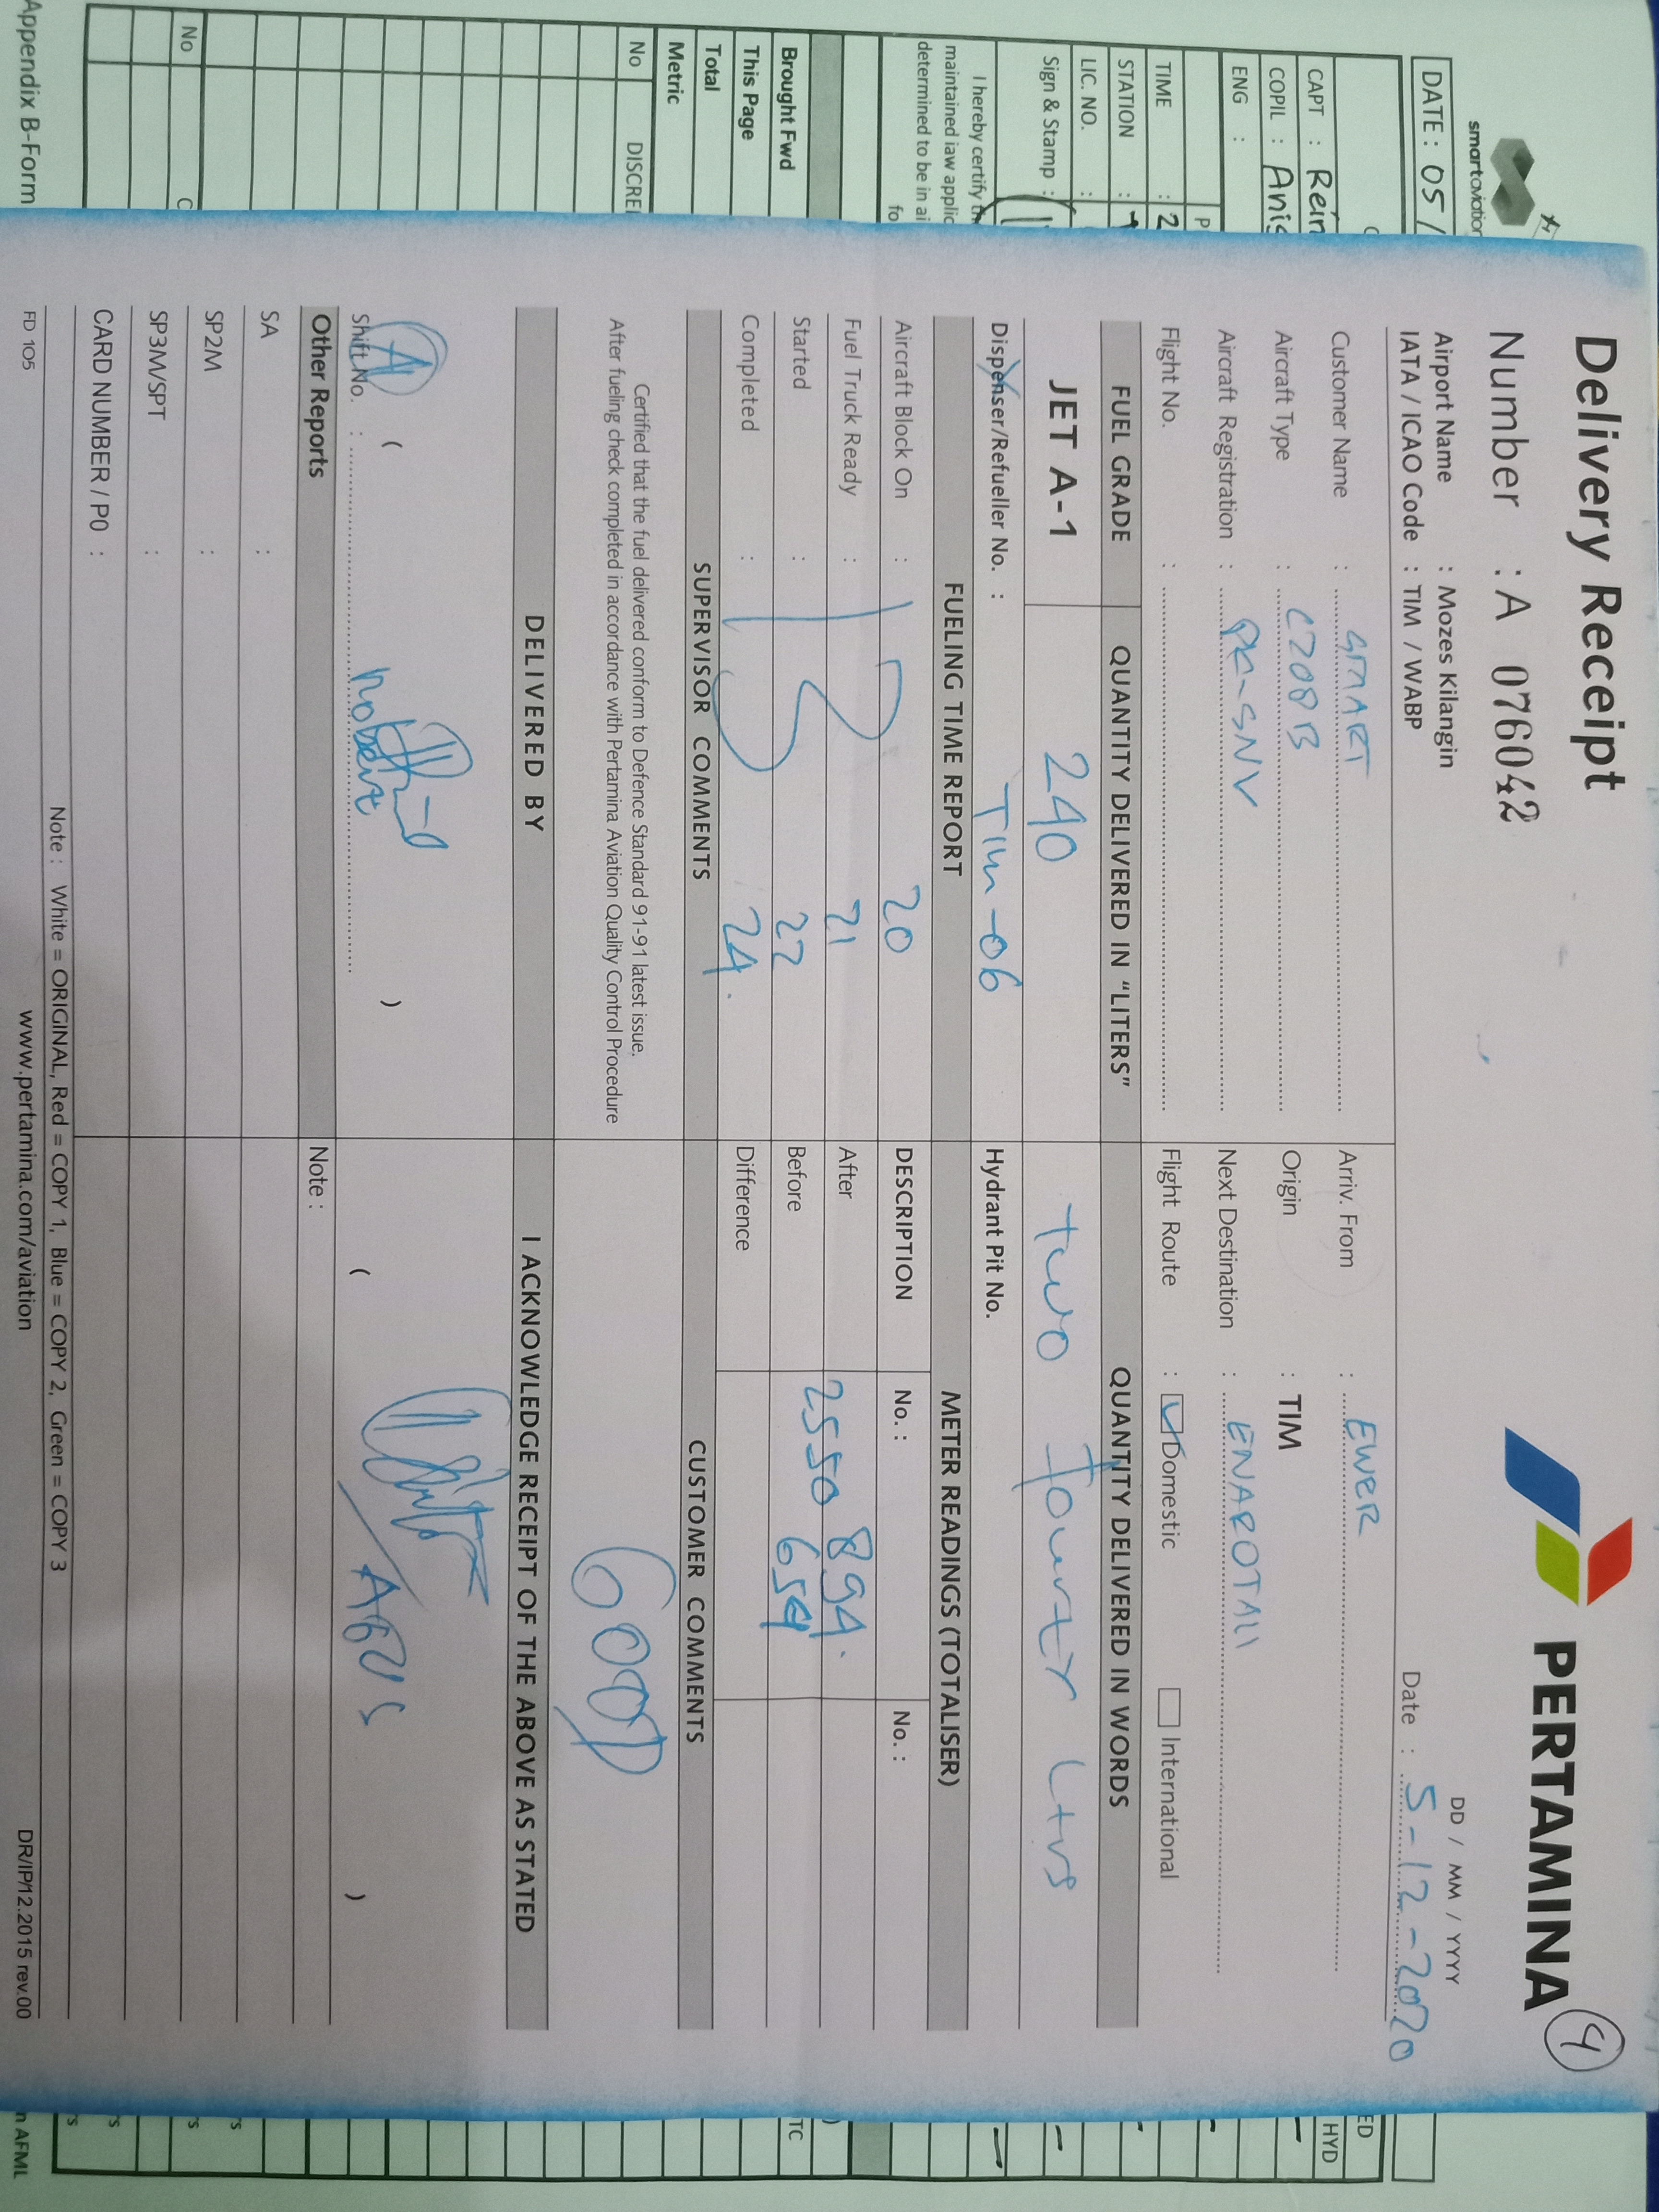 Delivery Receipt
PERTAMINA
4
Number : A 076042
DD / MM / YYYY
Airport Name : Mozes Kilangin
IATA / ICAO Code : TIM / WABP
Date : 5-12-2020
Customer Name : SMART
Arriv. From : EWER
Aircraft Type : C208B
Origin : TIM
Aircraft Registration : PK-SNV
Next Destination : ENAROTALI
Flight No. :
Flight Route : Domestic International
FUEL GRADE
QUANTITY DELIVERED IN "LITERS"
QUANTITY DELIVERED IN WORDS
JET A-1
240
Two Fourty Ltrs
Dispenser/Refueller No. : TIM-06
Hydrant Pit No.
FUELING TIME REPORT
METER READINGS (TOTALISER)
Aircraft Block On : 20
DESCRIPTION
No. :
No. :
Fuel Truck Ready : 21
After
2550 894.
Started : 22
Before
654
Completed : 24.
Difference
SUPERVISOR COMMENTS
CUSTOMER COMMENTS
Certified that the fuel delivered conform to Defence Standard 91-91 latest issue.
After fueling check completed in accordance with Pertamina Aviation Quality Control Procedure
GOOD
DELIVERED BY
I ACKNOWLEDGE RECEIPT OF THE ABOVE AS STATED
A
( )
Shift No. :
( AGUS )
Other Reports
Note :
SA :
SP2M :
SP3M/SPT :
CARD NUMBER / P0 :
Note : White = ORIGINAL, Red = COPY 1, Blue = COPY 2, Green = COPY 3
FD 105
www.pertamina.com/aviation
DR/IP/12.2015 rev.00
smartaviation
DATE : 05 /
CAPT : Rein
COPIL : Anis
ENG :
P
TIME : 2
STATION :
LIC. NO. :
Sign & Stamp :
I hereby certify
maintained iaw applic
determined to be in ai
fo
Brought Fwd
This Page
Total
Metric
No DISCRE
No
Appendix B-Form
ED
HYD
TC
n AFML